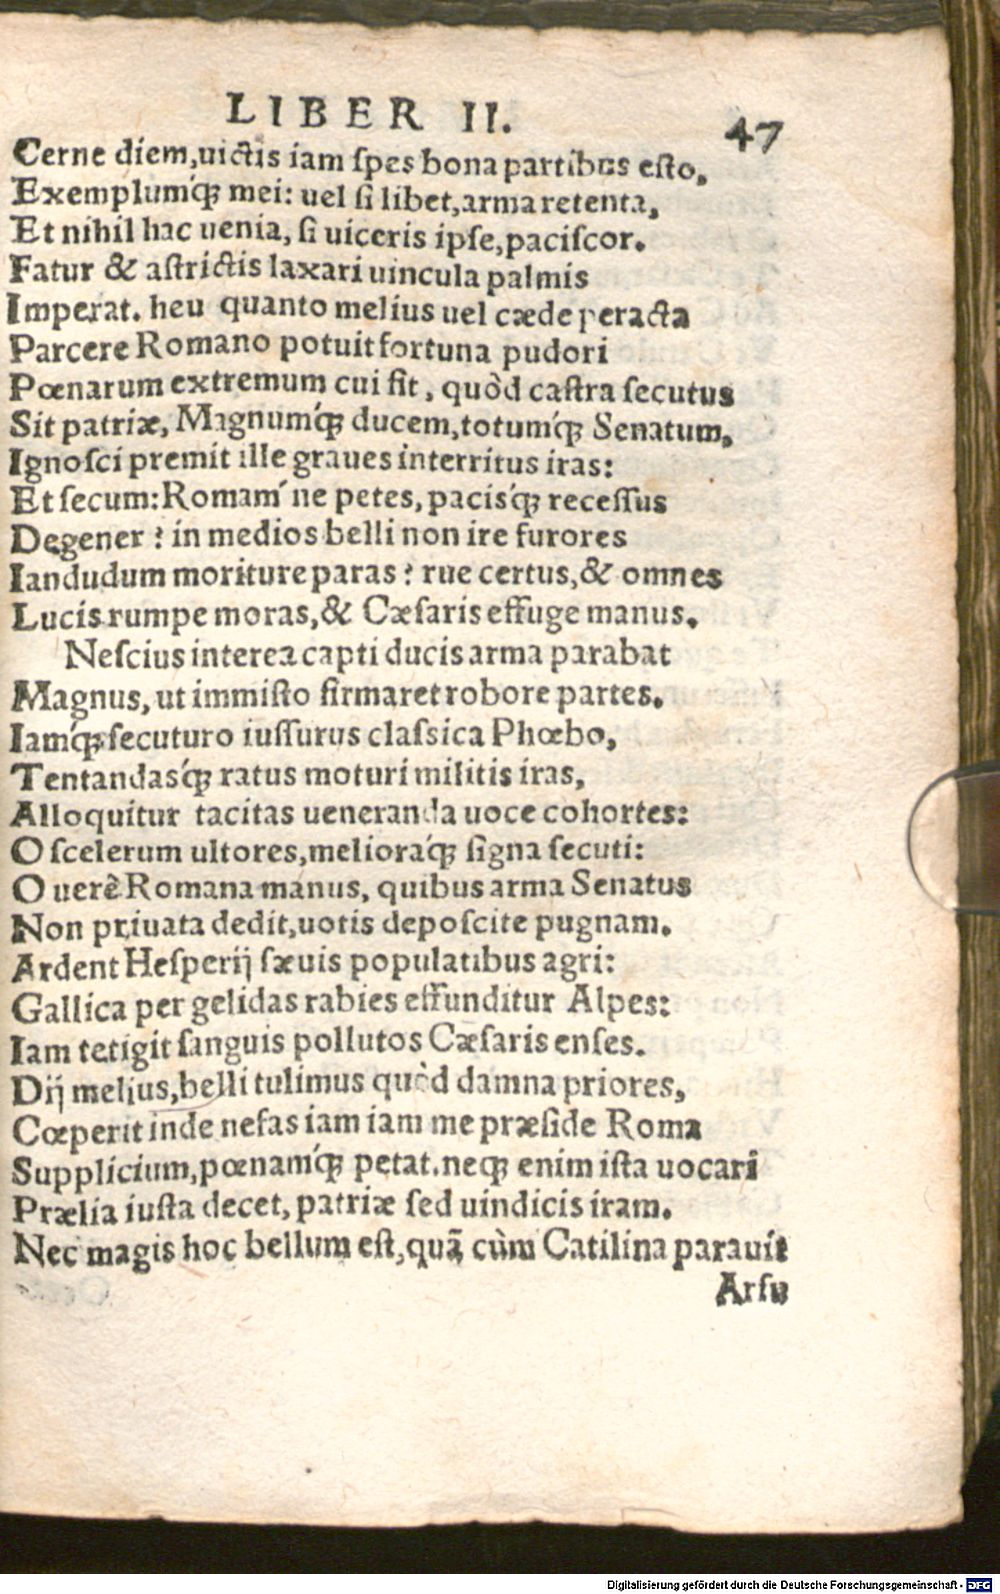 LIBER II. 47
Cerne diem,uictis iam ſpes bona partibus eſto,
Exemplumq́; mei: uel ſi libet,arma retenta,
Et nihil hac uenia, ſi uiceris ipſe,paciſcor.
Fatur & aſtrictis laxari uincula palmis
Imperat. heu quanto melius uel cæde peracta
Parcere Romano potuit fortuna pudori
Pœnarum extremum cui fit, quòd caſtra ſecutus
Sit patriæ, Magnumq́; ducem,totumq́; Senatum,
Ignoſci premit ille graues interritus iras:
Et ſecum: Romam´ne petes, pacisq́; receſſus
Degener? in medios belli non ire furores
Iandudum moriture paras? rue certus,& omnes
Lucis rumpe moras,& Cæſaris effuge manus.
Neſcius interea capti ducis arma parabat
Magnus, ut immiſto firmaret robore partes.
Iamq́; ſecuturo iuſſurus claſsica Phœbo,
Tentandasq́; ratus moturi militis iras,
Alloquitur tacitas ueneranda uoce cohortes:
O ſcelerum ultores,melioraq́; ſigna ſecuti:
O uerè Romana manus, quibus arma Senatus
Non priuata dedit,uotis depoſcite pugnam.
Ardent Heſperij ſæuis populatibus agri:
Gallica per gelidas rabies effunditur Alpes:
Iam tetigit ſanguis pollutos Cæſaris enſes.
Dij melius,belli tulimus quòd damna priores,
Cœperit inde nefas iam iam me præſide Roma
Supplicium,pœnamq́; petat.neq; enim iſta uocari
Prælia iuſta decet, patriæ ſed uindicis iram.
Nec magis hoc bellum eſt,quã cùm Catilina parauit
Arſu
Digitalisierung gefördert durch die Deutsche Forschungsgemeinschaft - DFG